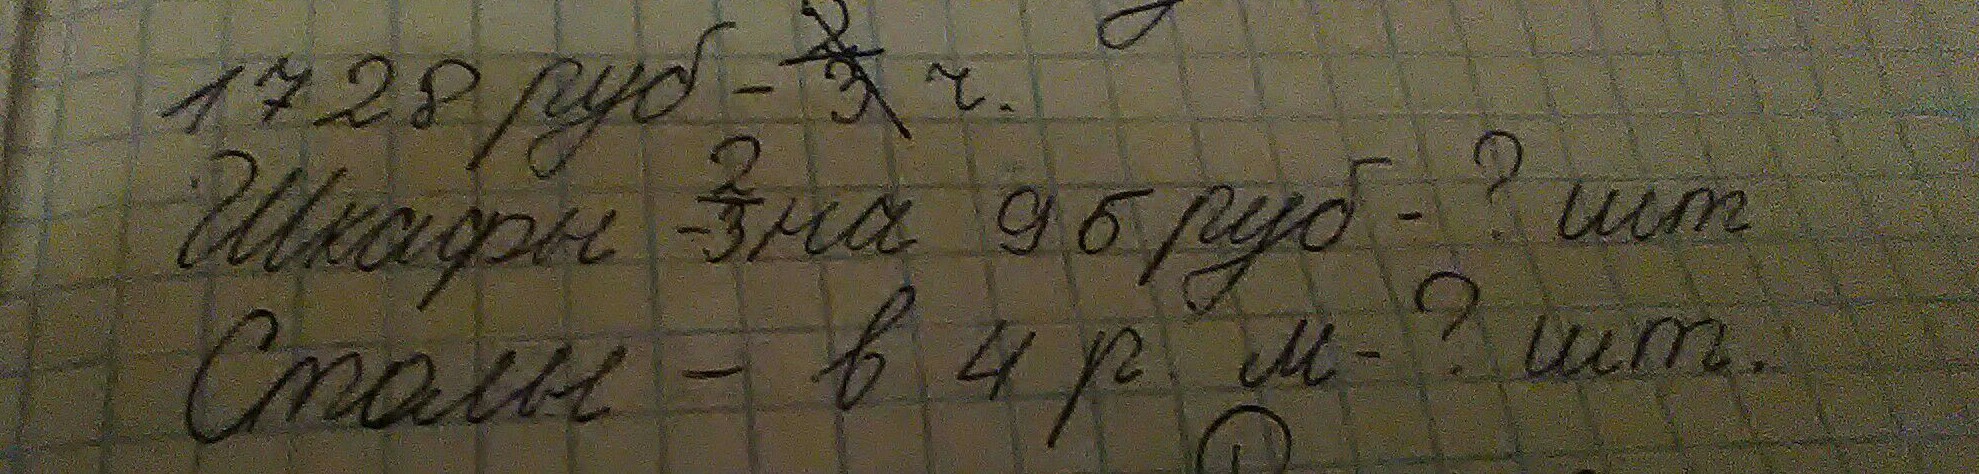 1728 руб - 2/3 ч.
Шкафы - 2/3 на 96 руб - ? шт
Столы - в 4 р м - ? шт.
1